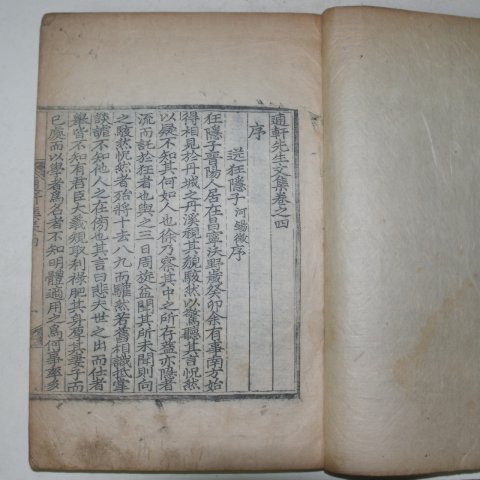 逎軒先生文集卷之四
序
送狂隱子河錫徵序
狂隱子晉陽人居在昌寧沃野歲癸卯余有事南方始
得相見於丹城之丹溪視其貌駭然以驚聽其言怳然
以疑不知其何如人也徐乃察其中之所存盖亦隱者
流而託於狂者也與之三日周旋益聞其所未聞則向
之駭然怳然者殆將十去八九而驩然若舊相識抵掌
談論不知他人之在傍也其言曰悲夫世之出而仕者
擧皆不知有君臣大義須取利祿肥其身榮其妻子而
已處而以學者爲名者不知明體適用之爲何事率多